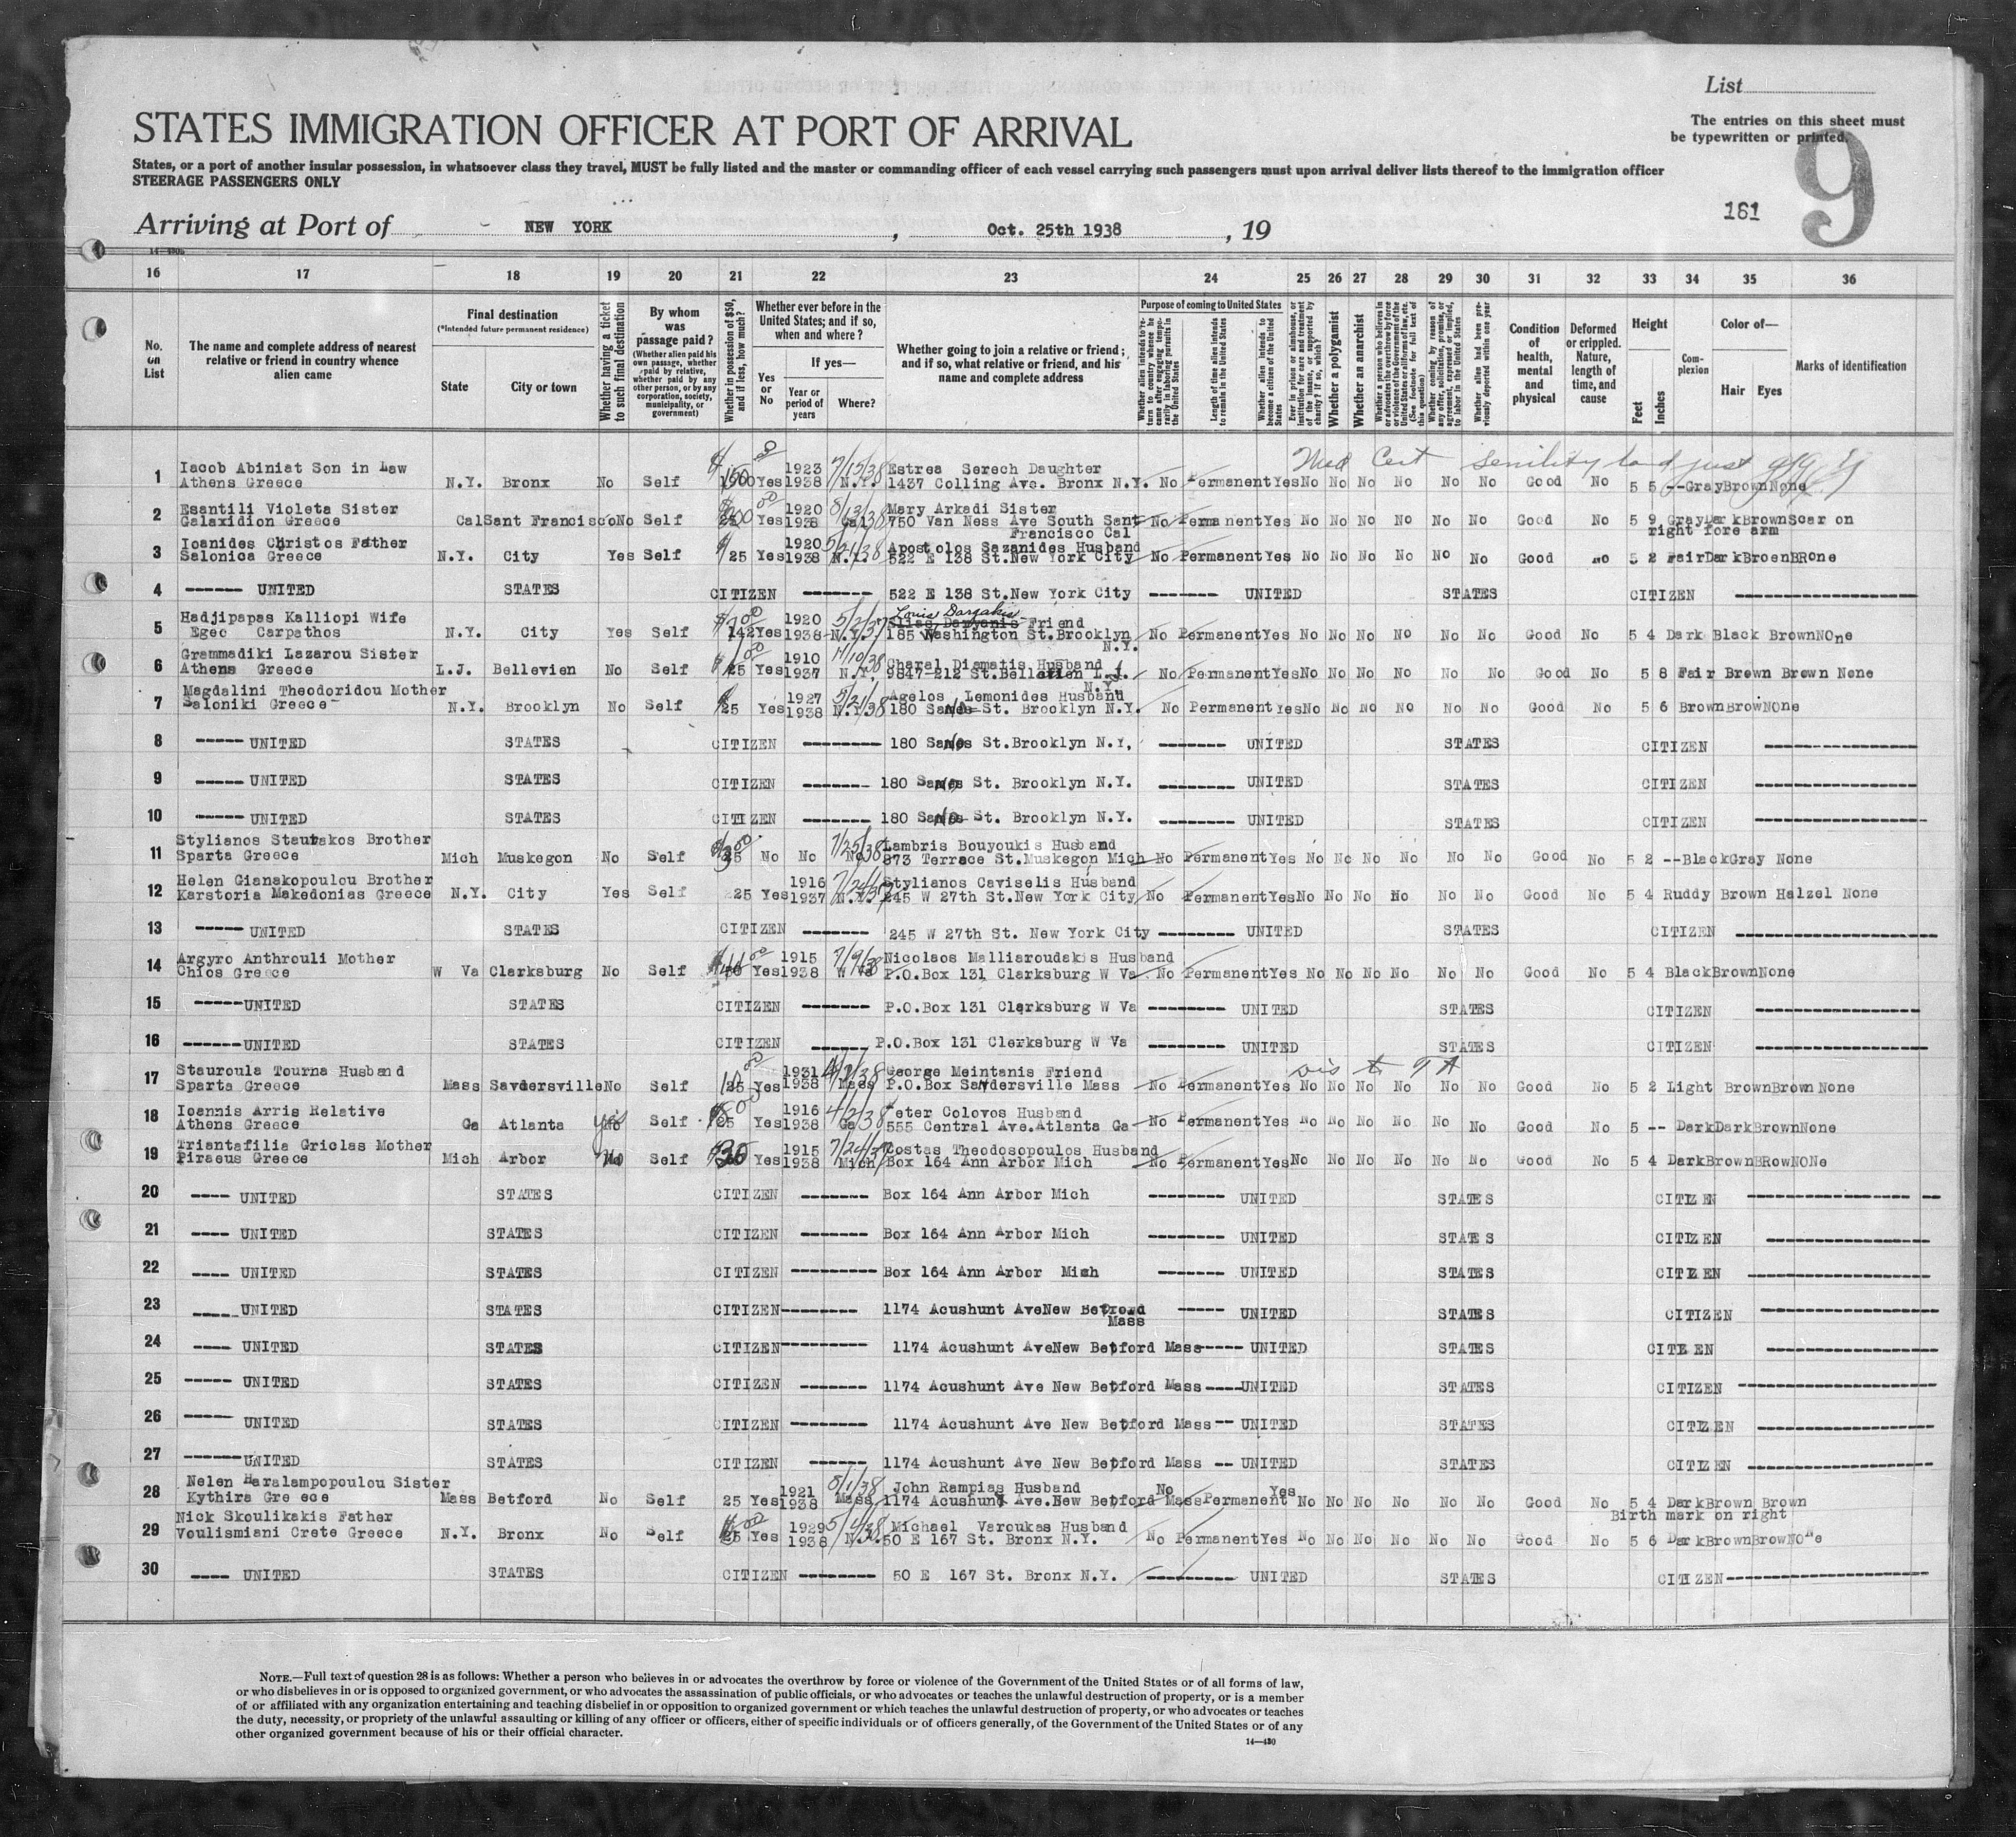 List
The entries on this sheet must
be typewritten or printed.
9
161
STATES IMMIGRATION OFFICER AT PORT OF ARRIVAL
States, or a port of another insular possession, in whatsoever class they travel, MUST be fully listed and the master or commanding officer of each vessel carrying such passengers must upon arrival deliver lists thereof to the immigration officer
STEERAGE PASSENGERS ONLY
Arriving at Port of NEW YORK , Oct. 25th 1938 , 19
16 17 18 19 20 21 22 23 24 25 26 27 28 29 30 31 32 33 34 35 36
No. on List
The name and complete address of nearest relative or friend in country whence alien came
Final destination
(*Intended future permanent residence)
State City or town
Whether having a ticket to such final destination
By whom was passage paid?
(Whether alien paid his own passage, whether paid by relative, whether paid by any other person, or by any corporation, society, municipality, or government)
Whether in possession of $50, and if less, how much?
Whether ever before in the United States; and if so, when and where?
Yes or No
If yes—
Year or period of years Where?
Whether going to join a relative or friend; and if so, what relative or friend, and his name and complete address
Purpose of coming to United States
Whether alien intends to return to country whence he came after engaging temporarily in laboring pursuits in the United States
Length of time alien intends to remain in the United States
Whether alien intends to become a citizen of the United States
Ever in prison or almshouse, or institution for care and treatment of the insane, or supported by charity? If so, which?
Whether a polygamist
Whether an anarchist
Whether a person who believes in or advocates the overthrow by force or violence of the Government of the United States or all forms of law, etc. (See footnote for full text of this question)
Whether coming by reason of any offer, solicitation, promise, or agreement, expressed or implied, to labor in the United States
Whether alien had been previously deported within one year
Condition of health, mental and physical
Deformed or crippled. Nature, length of time, and cause
Height
Feet Inches
Complexion
Color of—
Hair Eyes
Marks of identification
Med Cert senility
1 Iacob Abiniat Son in Law
Athens Greece N.Y. Bronx No Self Yes 1923 1938 7/15/38 N.Y. Estrea Serech Daughter
1437 Colling Ave. Bronx N.Y. No Permanent Yes No No No No No No Good No 5 5 --Gray Brown None
2 Esantili Violeta Sister
Galaxidion Greece Cal Sant Francisco No Self 25 Yes 1920 1938 Cal Mary Arkadi Sister
750 Van Ness Ave South Sant Francisco Cal No Permanent Yes No No No No No No Good No 5 9 Gray Dark Brown Scar on right fore arm
3 Ioanides Christos Father
Salonica Greece N.Y. City Yes Self 25 Yes 1920 1938 5/21/38 N.Y. Apostolos Sazanides Husband
522 E 138 St.New York City No Permanent Yes No No No No No No Good No 5 2 Fair Dark Broen BRone
4 ------ UNITED STATES CITIZEN ------- 522 E 138 St.New York City ------- UNITED STATES CITIZEN
5 Hadjipapas Kalliopi Wife
Egeo Carpathos N.Y. City Yes Self 142 Yes 1920 1938 5/21/37 N.Y. Louis Dargakis
Elias Damyanis Friend
185 Washington St.Brooklyn N.Y. No Permanent Yes No No No No No No Good No 5 4 Dark Black Brown NOne
6 Grammadiki Lazarou Sister
Athens Greece L.J. Bellevien No Self 25 Yes 1910 1937 N.Y. Charal Diamatis Husband
9847-212 St. L.J. N.Y. No Permanent Yes No No No No No No Good No 5 8 Fair Brown Brown None
7 Magdalini Theodoridou Mother
Saloniki Greece N.Y. Brooklyn No Self 25 Yes 1927 1938 5/21/38 N.Y. Agelos Lemonides Husband
180 St. Brooklyn N.Y. No Permanent Yes No No No No No No Good No 5 6 Brown Brow NOne
8 ----- UNITED STATES CITIZEN -------- 180 St.Brooklyn N.Y, ------- UNITED STATES CITIZEN ----------------
9 ----- UNITED STATES CITIZEN ------- 180 St. Brooklyn N.Y. -------- UNITED STATES CITIZEN ----------------
10 ----- UNITED STATES CITIZEN -------- 180 St. Brooklyn N.Y. -------- UNITED STATES CITIZEN ----------------
11 Stylianos Staurakos Brother
Sparta Greece Mich Muskegon No Self No No No 7/25/38 Lambris Bouyoukis Husband
873 Terrace St.Muskegon Mich No Permanent Yes No No No No No No Good No 5 2 --Black Gray None
12 Helen Gianakopoulou Brother
Karstoria Makedonias Greece N.Y. City Yes Self 25 Yes 1916 1937 7/24/37 N.Y. Stylianos Caviselis Husband
245 W 27th St.New York City No Permanent Yes No No No No No No Good No 5 4 Ruddy Brown Halzel None
13 ----- UNITED STATES CITIZEN ------- 245 W 27th St. New York City -------- UNITED STATES CITIZEN -----------------
14 Argyro Anthrouli Mother
Chios Greece W Va Clarksburg No Self Yes 1915 1938 7/9/38 W Va Nicolaos Malliaroudakis Husband
P.O.Box 131 Clarksburg W Va No Permanent Yes No No No No No No Good No 5 4 Black Brown None
15 -----UNITED STATES CITIZEN ------- P.O.Box 131 Clarksburg W Va -------- UNITED STATES CITIZEN ----------------
16 ------UNITED STATES CITIZEN ------ P.O.Box 131 Clerksburg W Va -------- UNITED STATES CITIZEN ----------------
17 Stauroula Tourna Husband
Sparta Greece Mass Savdersville No Self 25 Yes 1931 1938 Mass George Meintanis Friend
P.O.Box Sandersville Mass No Permanent Yes No No No No No No Good No 5 2 Light Brown Brown None
18 Ioannis Arris Relative
Athens Greece Ga Atlanta yes Self 25 Yes 1916 1938 4/2/38 Ga Peter Colovos Husband
555 Central Ave.Atlanta Ga No Permanent Yes No No No No No No Good No 5 -- Dark Dark Brown None
19 Triantafilia Griclas Mother
Piraeus Greece Mich Arbor No Self 35 Yes 1915 1938 7/24/37 Mich Costas Theodosopoulos Husband
Box 164 Ann Arbor Mich No Permanent Yes No No No No No No Good No 5 4 Dark Brown BRow NONe
20 ---- UNITED STATES CITIZEN ------- Box 164 Ann Arbor Mich -------- UNITED STATES CITIZEN ----------------
21 ---- UNITED STATES CITIZEN ------- Box 164 Ann Arbor Mich -------- UNITED STATES CITIZEN ----------------
22 ---- UNITED STATES CITIZEN --------- Box 164 Ann Arbor Mich ------- UNITED STATES CITIZEN ----------------
23 ---- UNITED STATES CITIZEN-------- 1174 Acushunt AveNew Betford Mass ----- UNITED STATES CITIZEN ----------------
24 ---- UNITED STATES CITIZEN--------- 1174 Acushunt AveNew Betford Mass----- UNITED STATES CITIZEN ----------------
25 ----- UNITED STATES CITIZEN ------- 1174 Acushunt Ave New Betford Mass ----UNITED STATES CITIZEN ----------------
26 ----- UNITED STATES CITIZEN -------- 1174 Acushunt Ave New Betford Mass-- UNITED STATES CITIZEN ----------------
27 ------UNITED STATES CITIZEN ------ 1174 Acushunt Ave New Betford Mass -- UNITED STATES CITIZEN ----------------
28 Nelen Haralampopoulou Sister
Kythira Greece Mass Betford No Self 25 Yes 1921 1938 8/1/38 Mass John Rampias Husband
1174 Acushunt Ave.New Betford Mass No Permanent Yes No No No No No No Good No 5 4 Dark Brown Brown
Birth mark on right
29 Nick Skoulikakis Father
Voulismiani Crete Greece N.Y. Bronx No Self 25 Yes 1929 1938 5/4/38 N.Y. Michael Varoukas Husband
50 E 167 St. Bronx N.Y. No Permanent Yes No No No No No No Good No 5 6 Dark Brown Brow NOne
30 ---- UNITED STATES CITIZEN -------- 50 E 167 St. Bronx N.Y. --------- UNITED STATES CITIZEN----------------
NOTE.—Full text of question 28 is as follows: Whether a person who believes in or advocates the overthrow by force or violence of the Government of the United States or of all forms of law,
or who disbelieves in or is opposed to organized government, or who advocates the assassination of public officials, or who advocates or teaches the unlawful destruction of property, or is a member
of or affiliated with any organization entertaining and teaching disbelief in or opposition to organized government or which teaches the unlawful destruction of property, or who advocates or teaches
the duty, necessity, or propriety of the unlawful assaulting or killing of any officer or officers, either of specific individuals or of officers generally, of the Government of the United States or of any
other organized government because of his or their official character.
14—430